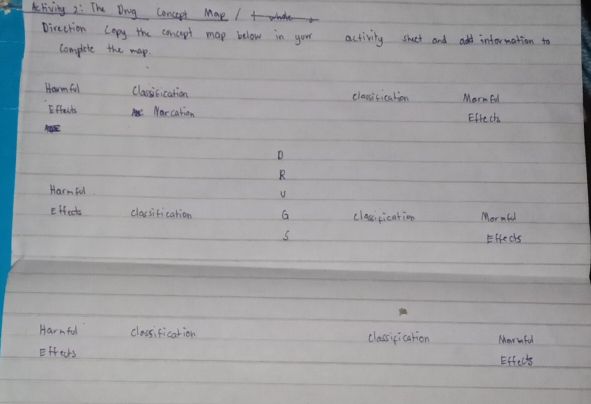 Activity 2: The Drug Concept Map / 1 whole
Direction Copy the concept map below in your activity sheet and add information to
Complete the map.
Harmful Classification classification Harmful
Effects Narcation Effects
D
R
Harmful U
Effects classification G Classification Harmful
S Effects
Harmful Classification Classification Harmful
Effects Effects